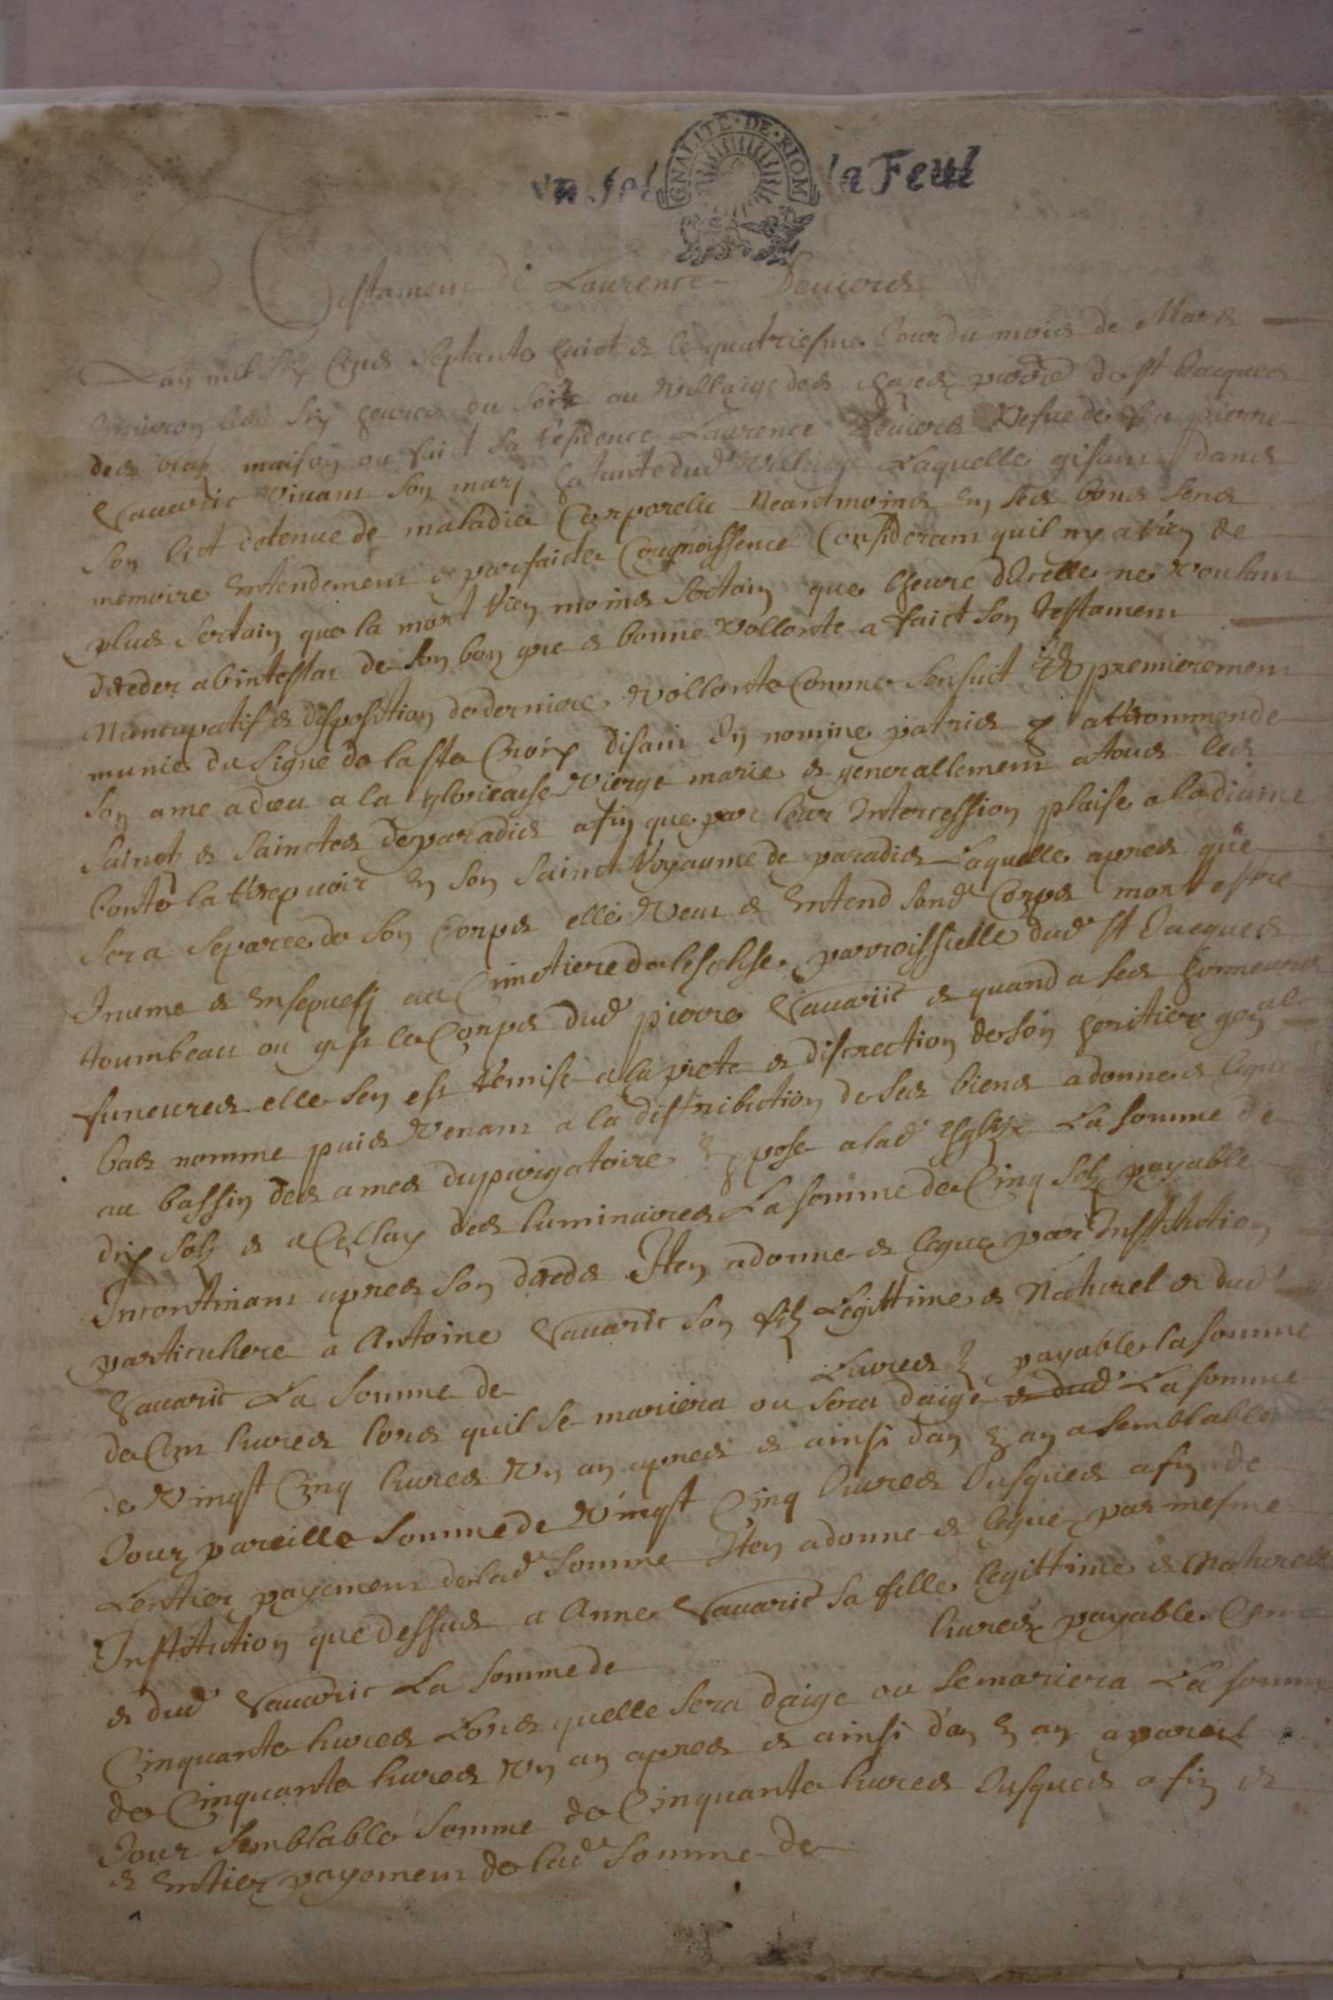 un sol GNALITE·DE·RIOM la Feul
Testament de Laurence Deuieres
Lan mil six cens septante huict & le quatriesme Jour du mois de Mars
Environ les six heures du soir au Villaige des parr.e de St Jacques
des blaz maison ou faict sa residence Laurence Deuieres Vefue de feu pierre
Sauaric Vivant son mary habitante dud Villaige Laquelle gisant dans
son lict detenue de maladie Corporelle Neantmoins En ses bons sens
memoire Entendement & parfaicte Cougnoissence Considerant quil ny a rien de
plus Certain que la mort rien moins Certain que lheure dicelle ne Voulant
deceder abintestat de son bon gre & bonne Vollonte a faict son testament
Nuncupatif & disposition de derniere Vollonte Comme sensuit Et premierement
munie du signe de la ste Croix disant In nomine patris & a recommende
son ame a dieu a la glorieause Vierge marie & generallement a tous les
sainct & sainctes de paradis afin que par leur Intercession plaise a la diuine
bonte la recepuoir En son sainct Royaume de paradis Laquelle apres que
sera separee de son Corps elle Veut & Entend sond Corps mort estre
Inume & Ensepuely au Cimetiere de lesglise parroissielle dud st Jacques
toumbeau ou gist le Corps dud pierre Sauaric & quand a ses honneurs
funeures elle sen est remise a la piete & discrection de son heritier gen.al
bas nomme puis Venant a la distribution de ses biens a donne & legue
au bassin des ames du purgatoire E pose a lad Esglize La somme de
dix solz & a Celluy des luminaires La somme de Cinq solz payable
Incontinant apres son deceds Iten a donne & legue par Institution
particuliere a Antoine Sauaric son filz Legittime & Naturel & dud
Sauaric La somme de Livres E payable la somme
de Cent livres lors quil se mariera ou sera daige & dud La somme
de Vingt Cinq livres Vn an apres & ainsi dan E an a semblable
Jour pareille somme de Vingt Cinq livres Jusques a fin de
Lentier payement de lad somme Iten a donne & legue par mesme
Institution que dessus a Anne Sauaric sa fille legittime & Naturelle
& dud Sauaric La somme de livres payable Cent
Cinquante livres Lors quelle sera daige ou se mariera La somme
de Cinquante livres Vn an apres & ainsi dan E an a pareil
Jour semblable somme de Cinquante livres Jusques a fin &
& Entier payement de lad somme de